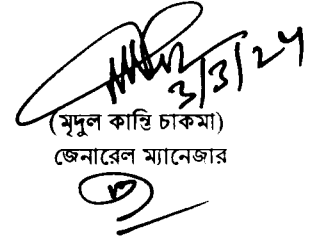 3/3/24
(মৃদুল কান্তি চাকমা)
জেনারেল ম্যানেজার